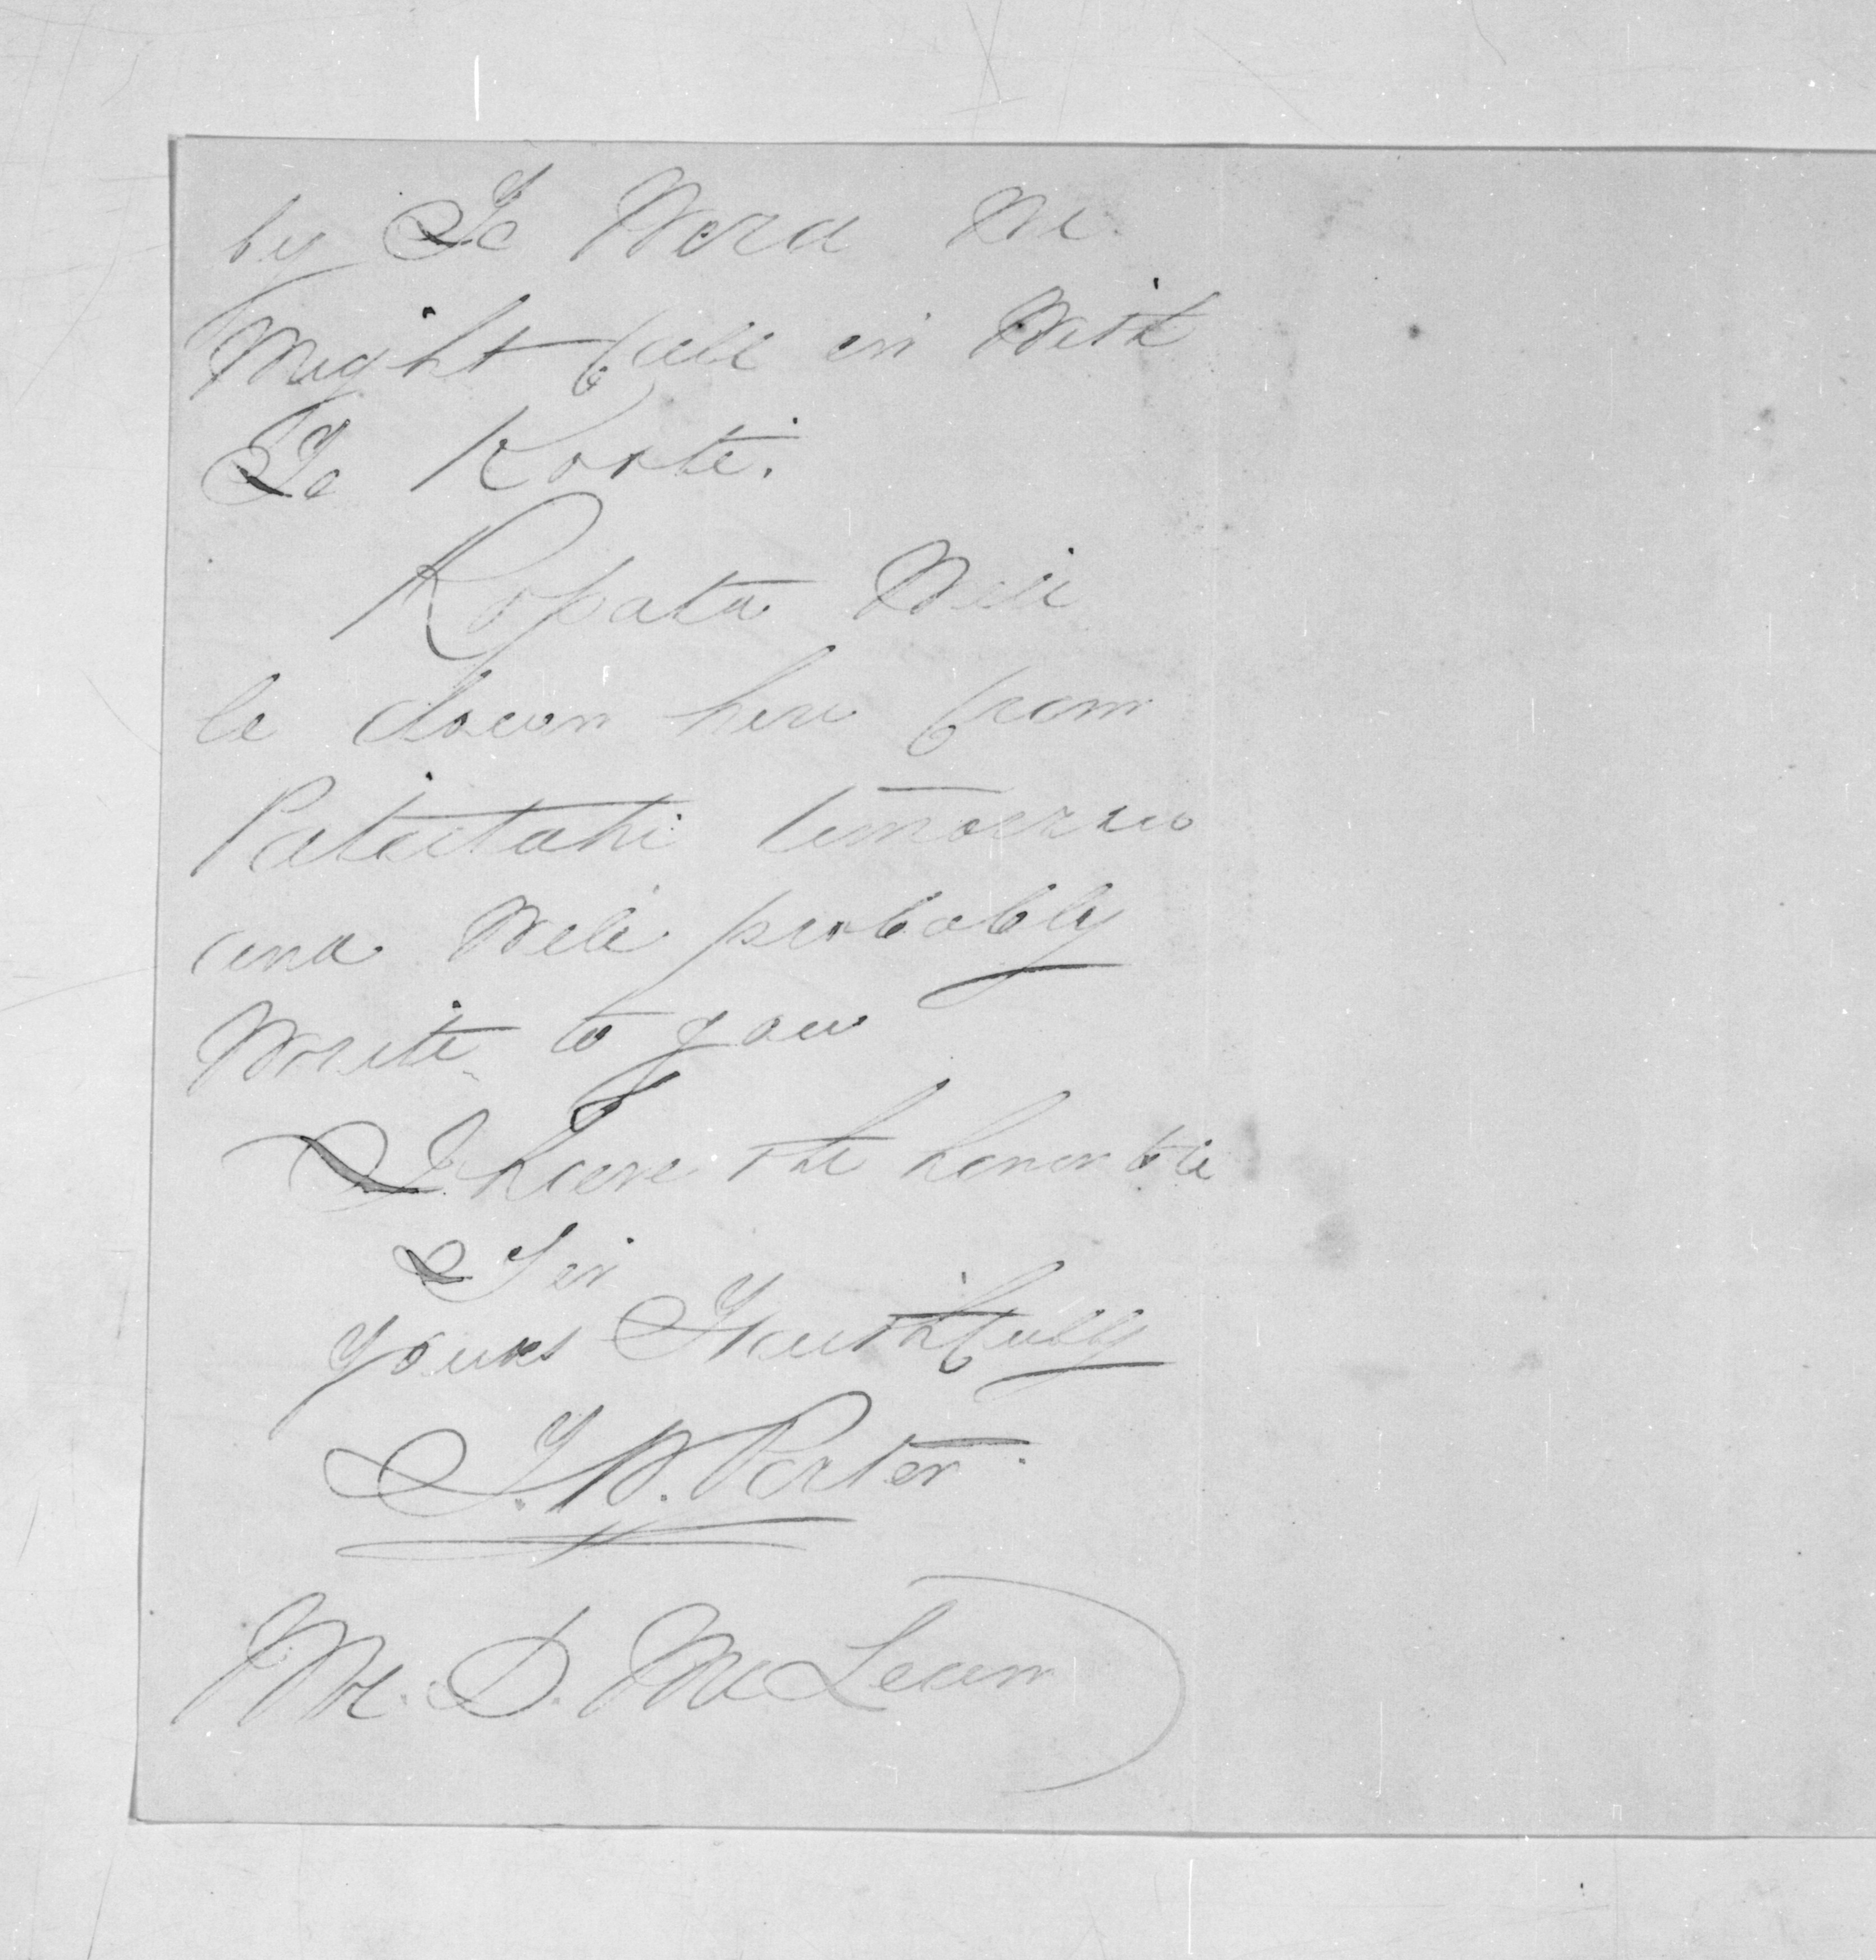 by Te Wera we
might fall in with
Te Kooti.
Ropata will
be down here from
Patutahi tomorrow
and will probably
write to you
I have the honor to be
Sir
Yours Faithfully
T. W. Porter.
Mr. D. McLean